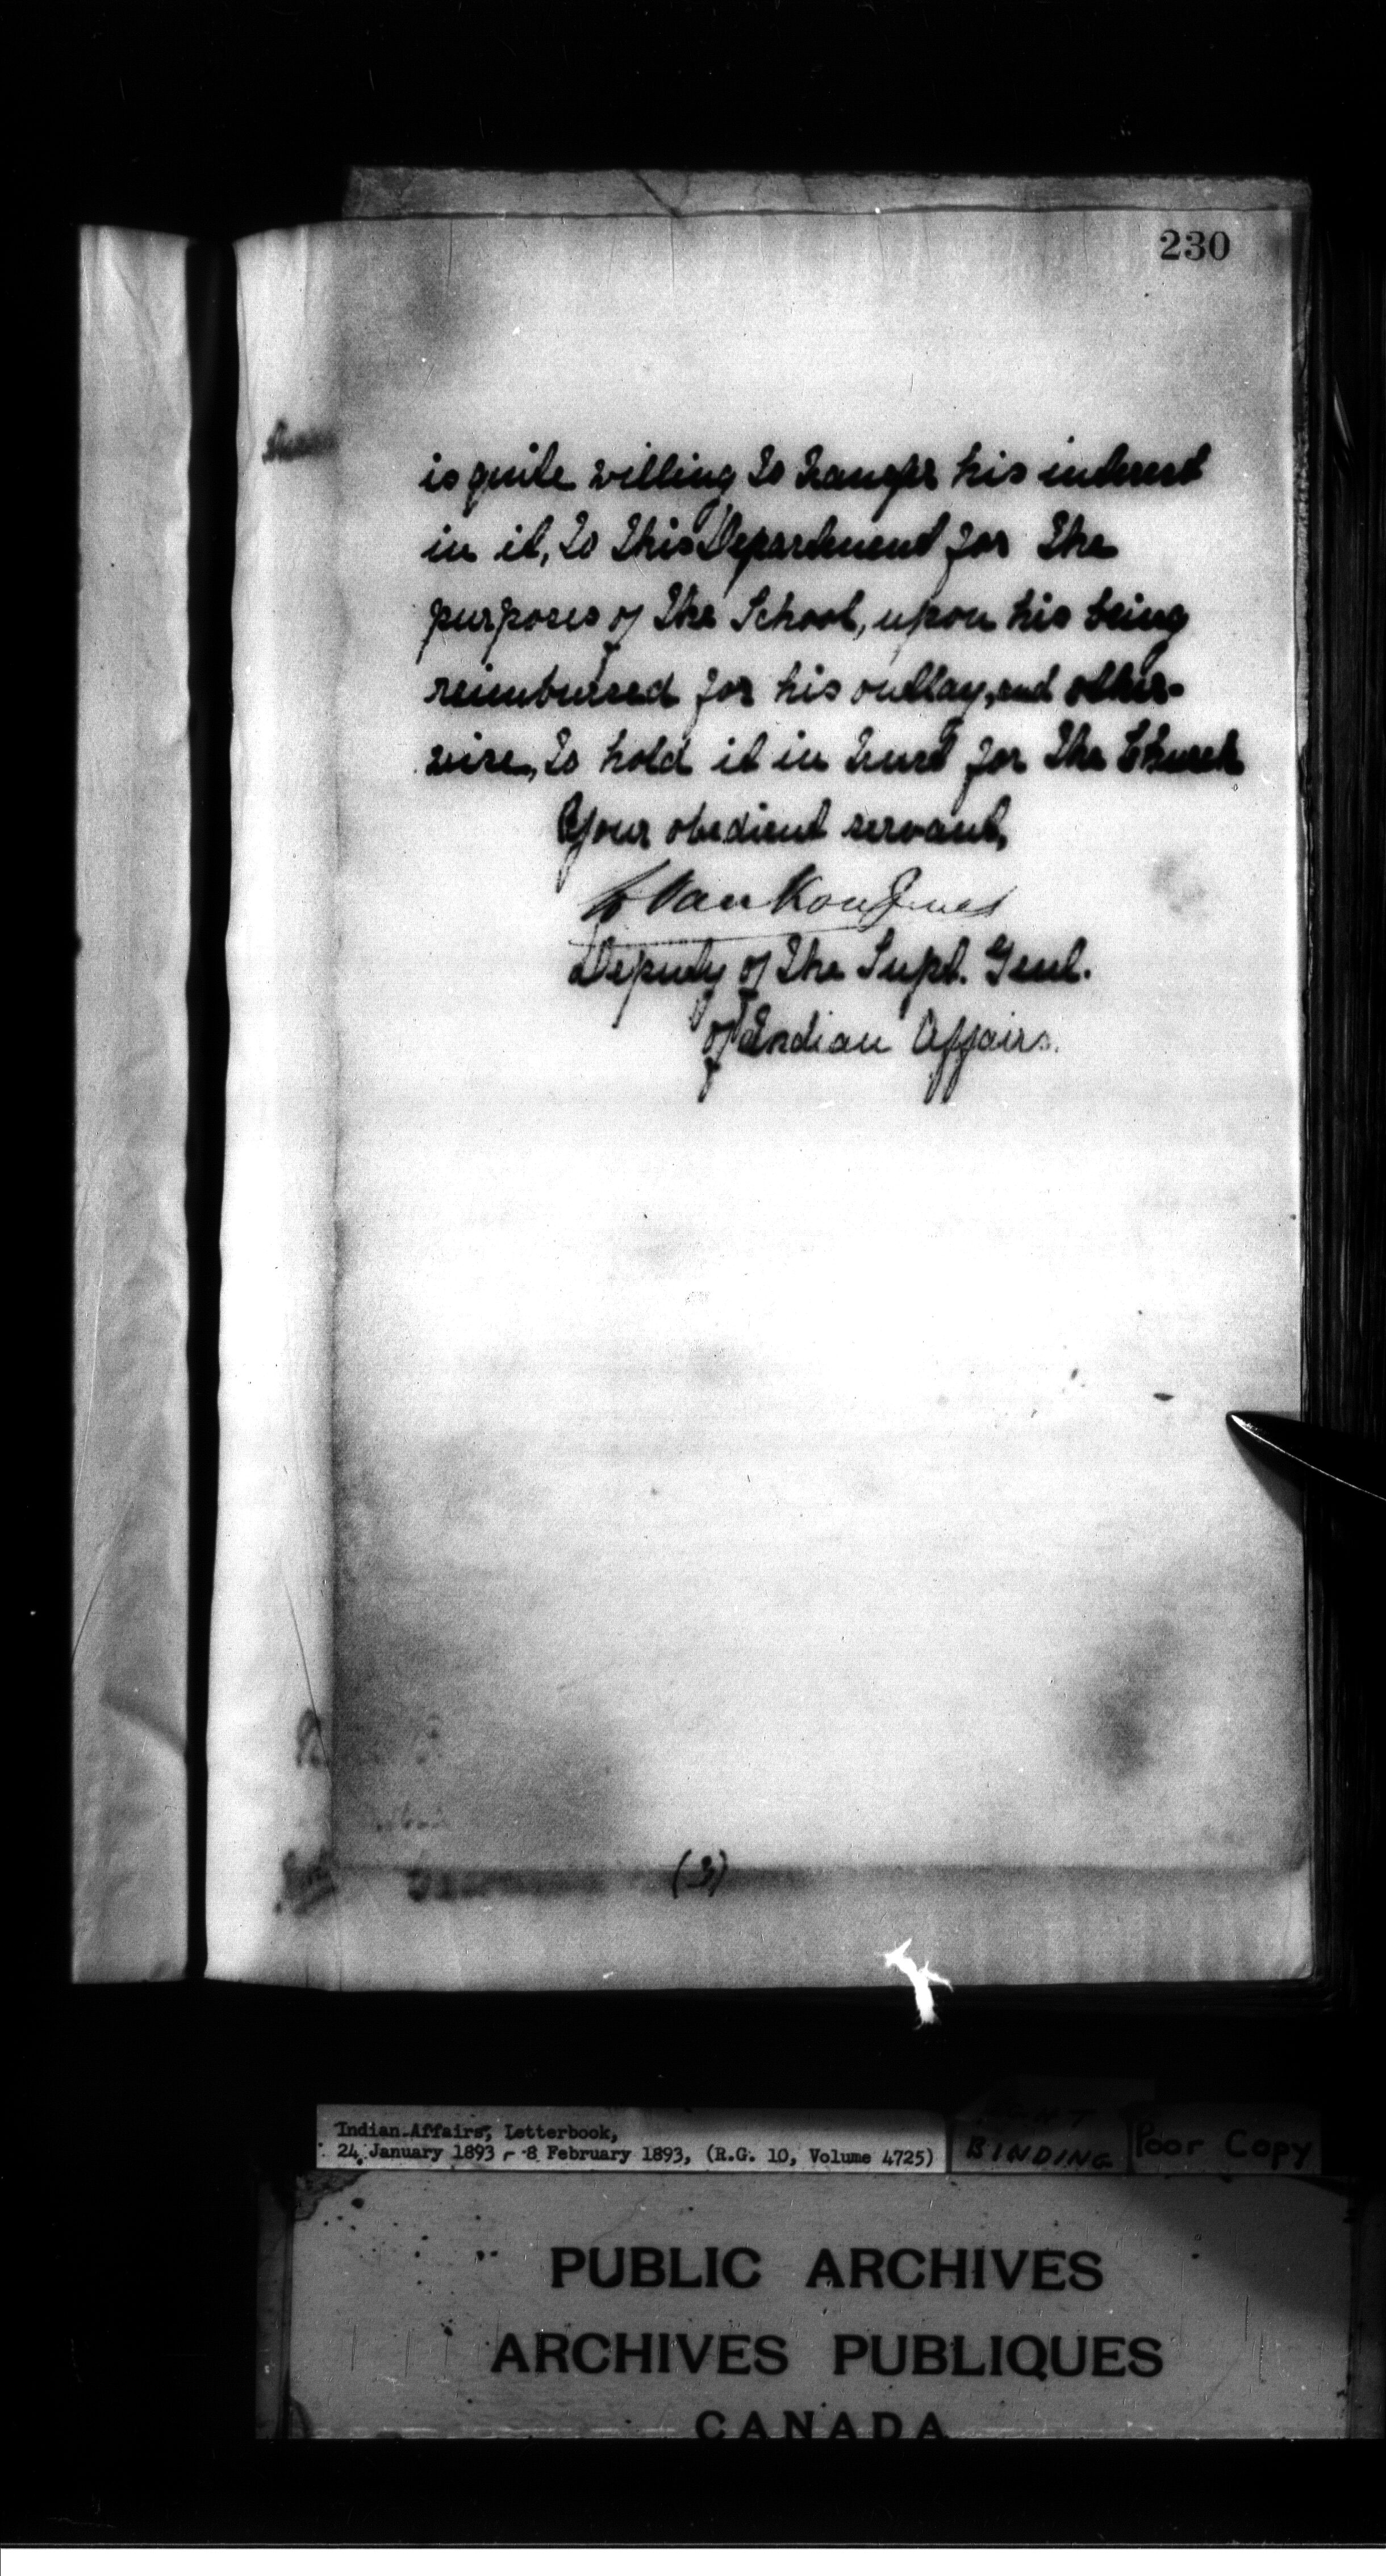 230
is quite willing to transfer his interest
in it, to this Department for the
purposes of the School, upon his being
reimbursed for his outlay, and other-
wise, to hold it in trust for the Church
Your obedient servant,
L VanKoughnet
Deputy of the Supt. Genl.
of Indian Affairs.
(3)
Indian Affairs, Letterbook,
24 January 1893 - 8 February 1893, (R.G. 10, Volume 4725)
BINDING
Poor Copy
PUBLIC ARCHIVES
ARCHIVES PUBLIQUES
CANADA